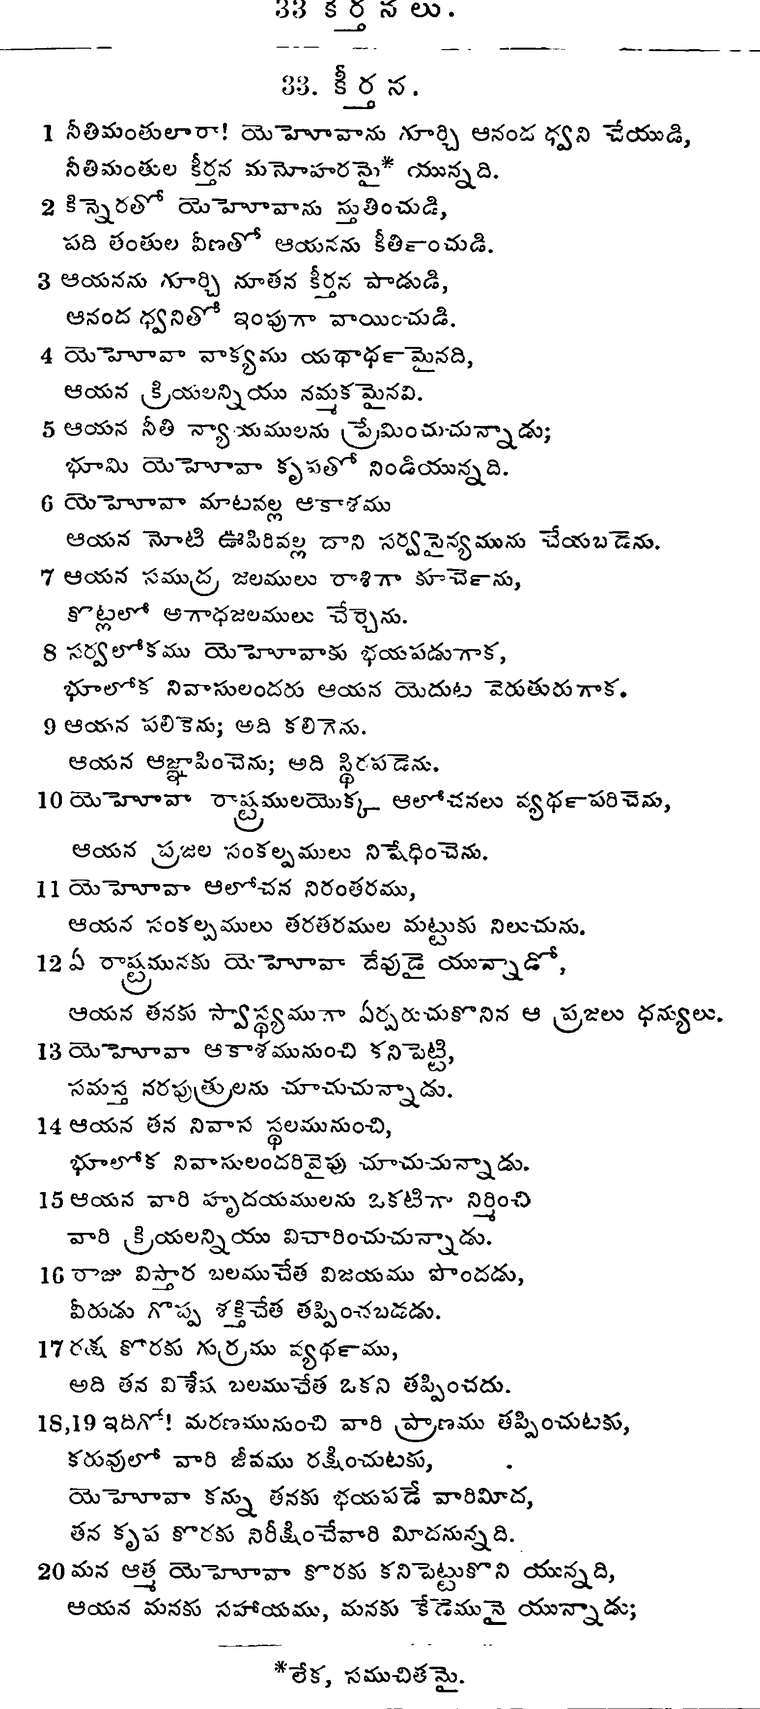 33 కీర్తనలు.
33. కీర్తన.
1 నీతిమంతులారా! యెహోవాను గూర్చి ఆనంద ధ్వని చేయుడి,
నీతిమంతుల కీర్తన మనోహరమై* యున్నది.
2 కిన్నెరతో యెహోవాను స్తుతించుడి,
పది తంతుల వీణతో ఆయనను కీర్తించుడి.
3 ఆయనను గూర్చి నూతన కీర్తన పాడుడి,
ఆనంద ధ్వనితో ఇంపుగా వాయించుడి.
4 యెహోవా వాక్యము యథార్థమైనది,
ఆయన క్రియలన్నియు నమ్మకమైనవి.
5 ఆయన నీతి న్యాయములను ప్రేమించుచున్నాడు;
భూమి యెహోవా కృపతో నిండియున్నది.
6 యెహోవా మాటవల్ల ఆకాశము
ఆయన నోటి ఊపిరివల్ల దాని సర్వసైన్యమును చేయబడెను.
7 ఆయన సముద్ర జలములు రాశిగా కూర్చెను,
కొట్లలో అగాధజలములు చేర్చెను.
8 సర్వలోకము యెహోవాకు భయపడుగాక,
భూలోక నివాసులందరు ఆయన యెదుట వెరుతురుగాక.
9 ఆయన పలికెను; అది కలిగెను.
ఆయన ఆజ్ఞాపించెను; అది స్థిరపడెను.
10 యెహోవా రాష్ట్రములయొక్క ఆలోచనలు వ్యర్థపరిచెను,
ఆయన ప్రజల సంకల్పములు నిషేధించెను.
11 యెహోవా ఆలోచన నిరంతరము,
ఆయన సంకల్పములు తరతరముల మట్టుకు నిలుచును.
12 ఏ రాష్ట్రమునకు యెహోవా దేవుడై యున్నాడో,
ఆయన తనకు స్వాస్థ్యముగా ఏర్పరుచుకొనిన ఆ ప్రజలు ధన్యులు.
13 యెహోవా ఆకాశమునుంచి కనిపెట్టి,
సమస్త నరపుత్రులను చూచుచున్నాడు.
14 ఆయన తన నివాస స్థలమునుంచి,
భూలోక నివాసులందరివైపు చూచుచున్నాడు.
15 ఆయన వారి హృదయములను ఒకటిగా నిర్మించి
వారి క్రియలన్నియు విచారించుచున్నాడు.
16 రాజు విస్తార బలముచేత విజయము పొందడు,
వీరుడు గొప్ప శక్తిచేత తప్పించబడడు.
17 రక్ష కొరకు గుర్రము వ్యర్థము,
అది తన విశేష బలముచేత ఒకని తప్పించదు.
18,19 ఇదిగో! మరణమునుంచి వారి ప్రాణము తప్పించుటకు,
కరువులో వారి జీవము రక్షించుటకు,
యెహోవా కన్ను తనకు భయపడే వారిమీద,
తన కృప కొరకు నిరీక్షించేవారి మీదనున్నది.
20 మన ఆత్మ యెహోవా కొరకు కనిపెట్టుకొని యున్నది,
ఆయన మనకు సహాయము, మనకు కేడెమునై యున్నాడు;
*లేక, సముచితమై.